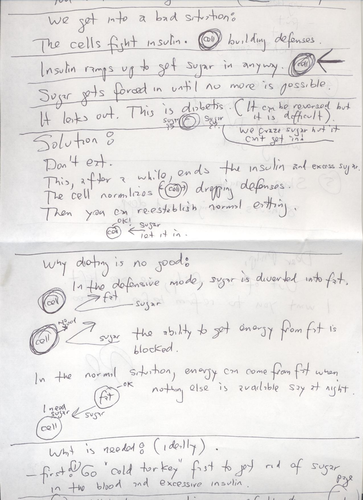 We get into a bad situation:
The cells fight insulin. cell building defenses.
Insulin ramps up to get sugar in anyway. cell
Sugar gets forced in until no more is possible.
It locks out. This is diabetis. (It can be reversed but
it is difficult).
sugar cell sugar
We crave sugar but it
can't get in!
Solution:
Don't eat.
This, after a while, ends the insulin and excess sugar.
The cell normalizes (cell) dropping defenses.
Then you can re-establish normal eating.
OK!
cell sugar
let it in.
Why dieting is no good:
In the defensive mode, sugar is diverted into fat.
cell fat
sugar
cell
sugar the ability to get energy from fat is
blocked.
In the normal situation, energy can come from fat when
nothing else is available say at night.
OK
fat
I need
sugar sugar
cell
What is needed: (ideally).
- first: Go "cold turkey" first to get rid of sugar
in the blood and excessive insulin.
page